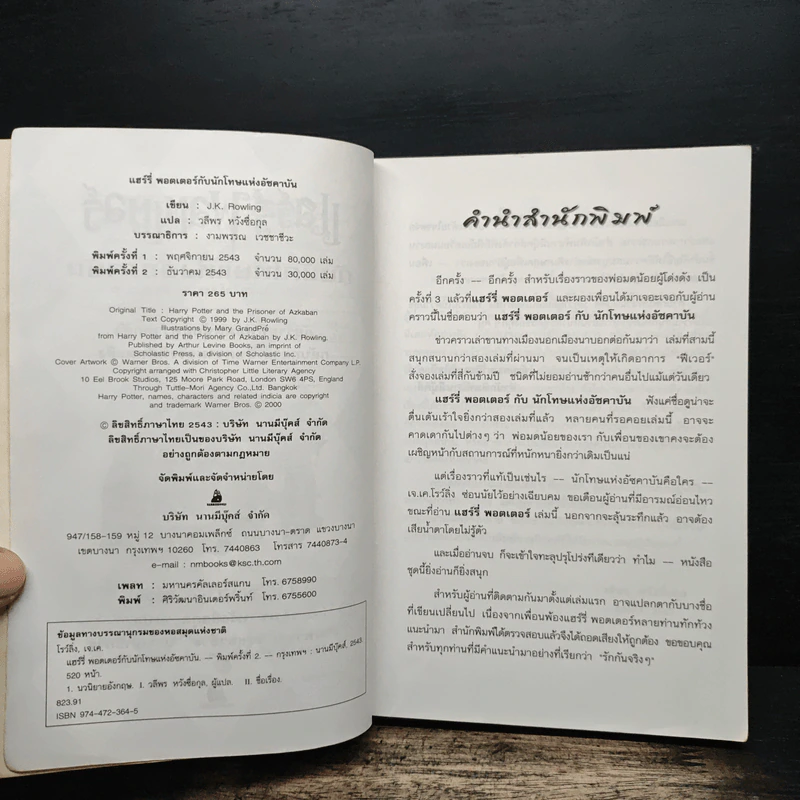 แฮร์รี่ พอตเตอร์กับนักโทษแห่งอัซคาบัน
เขียน : J.K. Rowling
แปล : วลีพร หวังซื่อกุล
บรรณาธิการ : งามพรรณ เวชชาชีวะ
พิมพ์ครั้งที่ 1 : พฤศจิกายน 2543 จำนวน 80,000 เล่ม
พิมพ์ครั้งที่ 2 : ธันวาคม 2543 จำนวน 30,000 เล่ม
ราคา 265 บาท
Original Title : Harry Potter and the Prisoner of Azkaban
Text Copyright © 1999 by J.K. Rowling
Illustrations by Mary GrandPré
from Harry Potter and the Prisoner of Azkaban by J.K. Rowling.
Published by Arthur Levine Books, an imprint of
Scholastic Press, a division of Scholastic Inc.
Cover Artwork © Warner Bros. A division of Time Warner Entertainment Company L.P.
Copyright arranged with Christopher Little Literary Agency
10 Eel Brook Studios, 125 Moore Park Road, London SW6 4PS, England
Through Tuttle-Mori Agency Co.,Ltd. Bangkok
Harry Potter, names, characters and related indicia are copyright
and trademark Warner Bros. © 2000
© ลิขสิทธิ์ภาษาไทย 2543 : บริษัท นานมีบุ๊คส์ จำกัด
ลิขสิทธิ์ภาษาไทยเป็นของบริษัท นานมีบุ๊คส์ จำกัด
อย่างถูกต้องตามกฎหมาย
จัดพิมพ์และจัดจำหน่ายโดย
บริษัท นานมีบุ๊คส์ จำกัด
947/158-159 หมู่ 12 บางนาคอมเพล็กซ์ ถนนบางนา-ตราด แขวงบางนา
เขตบางนา กรุงเทพฯ 10260 โทร. 7440863 โทรสาร 7440873-4
e-mail : nmbooks@ksc.th.com
เพลท : มหานครคัลเลอร์สแกน โทร. 6758990
พิมพ์ : ศิริวัฒนาอินเตอร์พริ้นท์ โทร. 6755600
ข้อมูลทางบรรณานุกรมของหอสมุดแห่งชาติ
โรว์ลิ่ง, เจ.เค.
แฮร์รี่ พอตเตอร์กับนักโทษแห่งอัซคาบัน. -- พิมพ์ครั้งที่ 2. -- กรุงเทพฯ : นานมีบุ๊คส์, 2543
520 หน้า.
1. นวนิยายอังกฤษ. I. วลีพร หวังซื่อกุล, ผู้แปล. II. ชื่อเรื่อง.
823.91
ISBN 974-472-364-5
คำนำสำนักพิมพ์
อีกครั้ง -- อีกครั้ง สำหรับเรื่องราวของพ่อมดน้อยผู้โด่งดัง เป็น
ครั้งที่ 3 แล้วที่แฮร์รี่ พอตเตอร์ และผองเพื่อนได้มาเจอะเจอกับผู้อ่าน
คราวนี้ในชื่อตอนว่า แฮร์รี่ พอตเตอร์ กับ นักโทษแห่งอัซคาบัน
ข่าวคราวเล่าขานทางเมืองนอกเมืองนาบอกต่อกันมาว่า เล่มที่สามนี้
สนุกสนานกว่าสองเล่มที่ผ่านมา จนเป็นเหตุให้เกิดอาการ "ฟีเวอร์"
สั่งจองเล่มที่สี่กันข้ามปี ชนิดที่ไม่ยอมอ่านช้ากว่าคนอื่นไปแม้แต่วันเดียว
แฮร์รี่ พอตเตอร์ กับ นักโทษแห่งอัซคาบัน ฟังแค่ชื่อดูน่าจะ
ตื่นเต้นเร้าใจยิ่งกว่าสองเล่มที่แล้ว หลายคนที่รอคอยเล่มนี้ อาจจะ
คาดเดากันไปต่างๆ ว่า พ่อมดน้อยของเรา กับเพื่อนของเขาคงจะต้อง
เผชิญหน้ากับสถานการณ์ที่หนักหนายิ่งกว่าเดิมเป็นแน่
แต่เรื่องราวที่แท้เป็นเช่นไร -- นักโทษแห่งอัซคาบันคือใคร --
เจ.เค.โรว์ลิ่ง ซ่อนนัยไว้อย่างเฉียบคม ขอเตือนผู้อ่านที่มีอารมณ์อ่อนไหว
ขณะที่อ่าน แฮร์รี่ พอตเตอร์ เล่มนี้ นอกจากจะลุ้นระทึกแล้ว อาจต้อง
เสียน้ำตาโดยไม่รู้ตัว
และเมื่ออ่านจบ ก็จะเข้าใจทะลุปรุโปร่งทีเดียวว่า ทำไม -- หนังสือ
ชุดนี้ยิ่งอ่านก็ยิ่งสนุก
สำหรับผู้อ่านที่ติดตามกันมาตั้งแต่เล่มแรก อาจแปลกตากับบางชื่อ
ที่เขียนเปลี่ยนไป เนื่องจากเพื่อนพ้องแฮร์รี่ พอตเตอร์หลายท่านทักท้วง
แนะนำมา สำนักพิมพ์ได้ตรวจสอบแล้วจึงได้ถอดเสียงให้ถูกต้อง ขอขอบคุณ
สำหรับทุกท่านที่มีคำแนะนำมาอย่างที่เรียกว่า "รักกันจริงๆ"